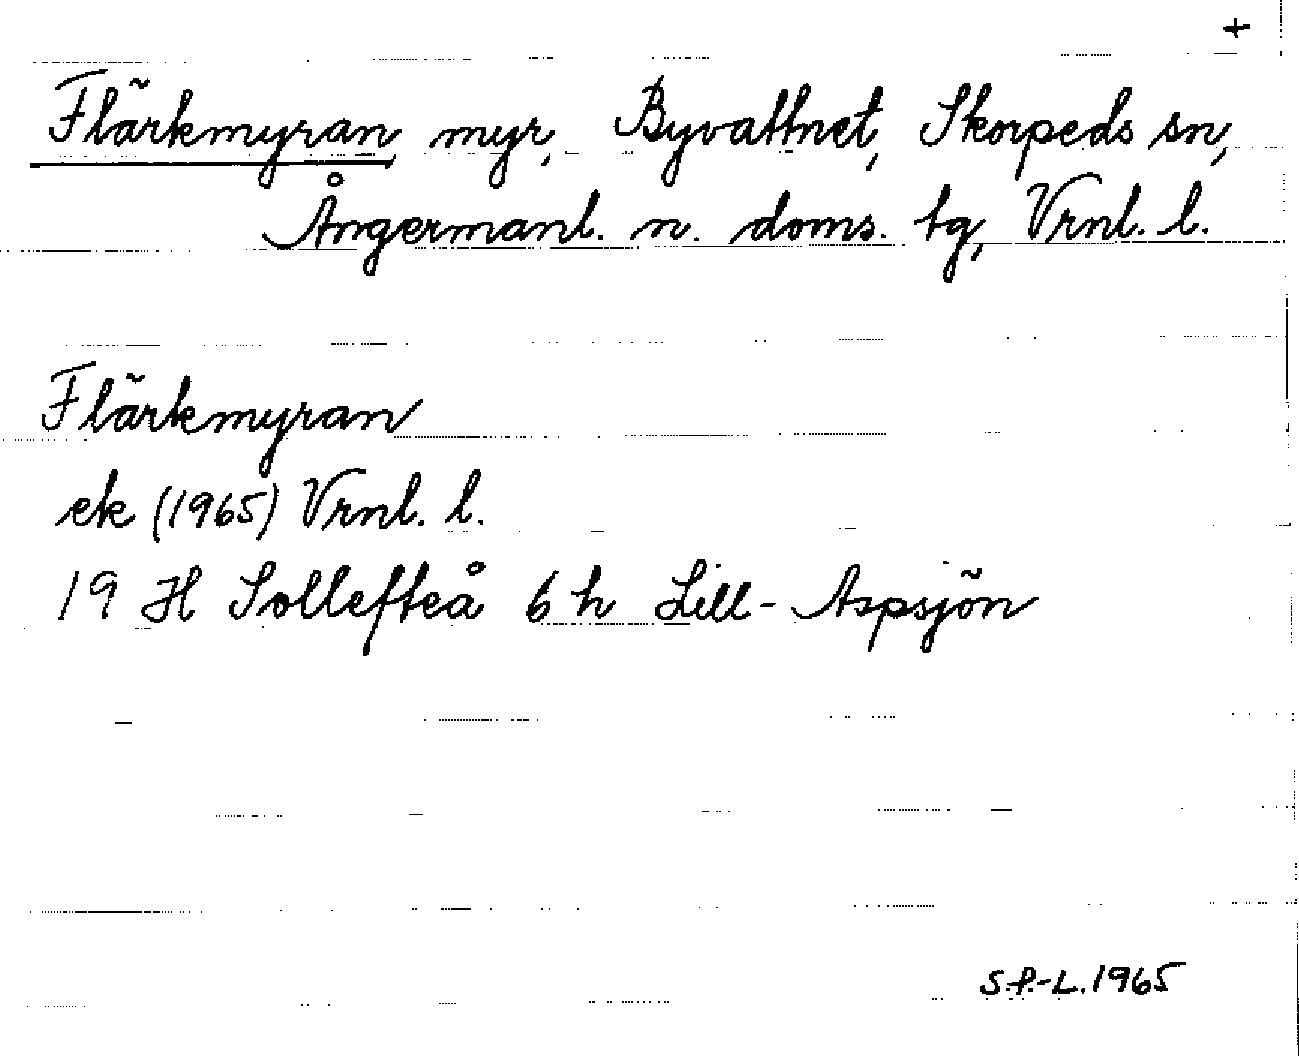 +
Flärkmyran, myr, Byvattnet, Skorpeds sn,
Ångermanl. n. doms. tg, Vrnl. l.
Flärkmyran
ek (1965) Vrnl. l.
19 H Sollefteå 6 h Lill-Aspsjön
S.P.-L. 1965